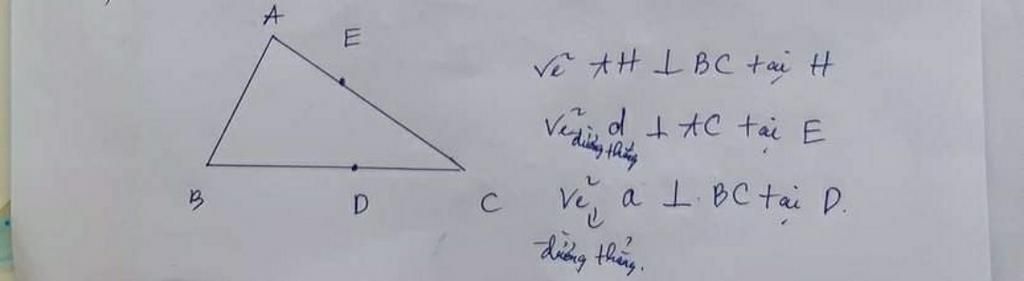 A
E
B
D
C
Vẽ AH ⊥ BC tại H
Vẽ đường thẳng d ⊥ AC tại E
Vẽ a ⊥ BC tại D.
đường thẳng.